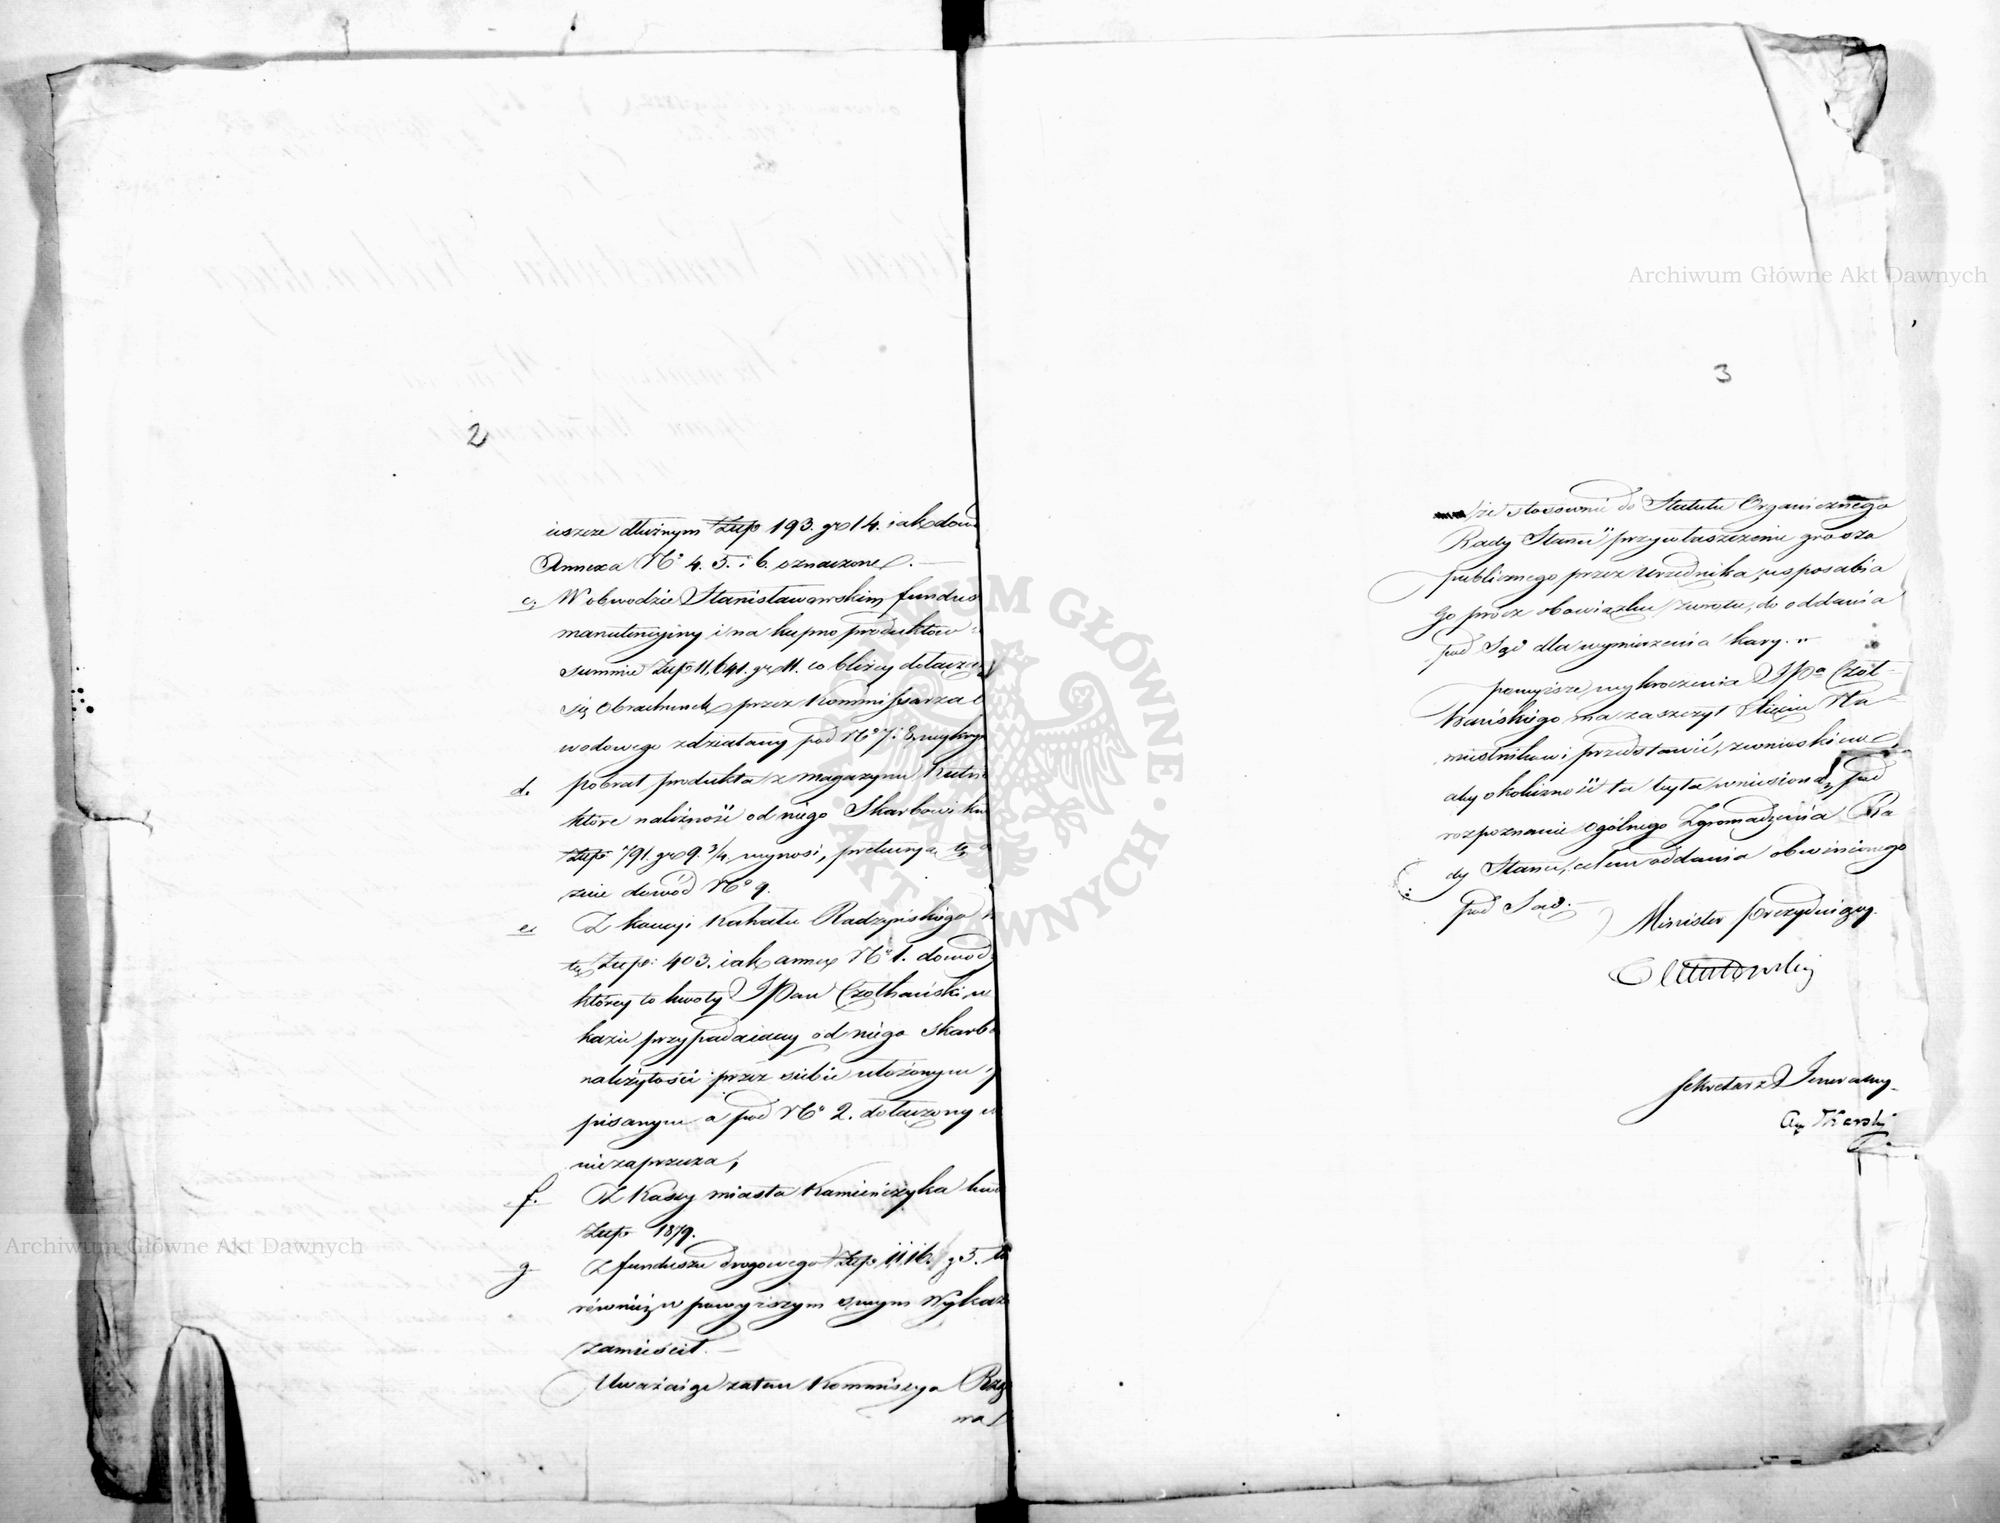 2
ieszcze dłużnym Złp 193. gr 14. iak dow
Annexa No 4. 5. i 6. oznaczone. —
c, W obwodzie Stanisławowskim fundus
manutencyiny i na kupno produktów
summie Złp 11,641. gr 11. co bliżey dołącza
się Obrachunek przez Kommissarza O
wodowego zdziałany pod No 7 i 8, wykryw
d. pobrał produkta z magazynu
które należność od niego Skarbowi
Złp 791. gr 9. 3/4 wynosi, tę
dowód No 9.
e, Z kaucyi Kahału Radzyńskiego
tę Złp: 403. iak annex No 1. dowod
którey to kwoty JPan Czołhański w
kazie przypadaiący od niego Skarb
należytości przez siebie ułożonym
pisanym a pod No 2. dołączony
niezaprzecza,
f. Z Kassy miasta Kamieńczyka kw
Złp 1879.
g Z funduszu drogowego Złp 1116. g 5.
również w powyższym swym Wykaz
zamieścił. —
Uważaiąc zatem Kommissya Rzą
wa
3
że stosownie do Statutu Organicznego
Rady Stanu" przywłaszczenie grosza
publicznego przez Urzędnika, usposabia
go prócz obowiązku zwrotu, do oddania
pod Sąd dla wymierzenia kary. "
powyższe wykroczenia JPa Czoł-
hańskiego ma zaszczyt Xięciu Na-
miestnikowi przedstawić, z wnioskiem
aby okoliczność ta była wniesioną pod
rozpoznanie ogólnego Zgromadzenia Ra
dy Stanu, celem oddania obwinionego
pod Sąd. —
Minister Prezyduiący.
Sekretarz Jeneralny
Archiwum Główne Akt Dawnych
Archiwum Główne Akt Dawnych
ARCHIWUM GŁÓWNE · AKT DAWNYCH ·